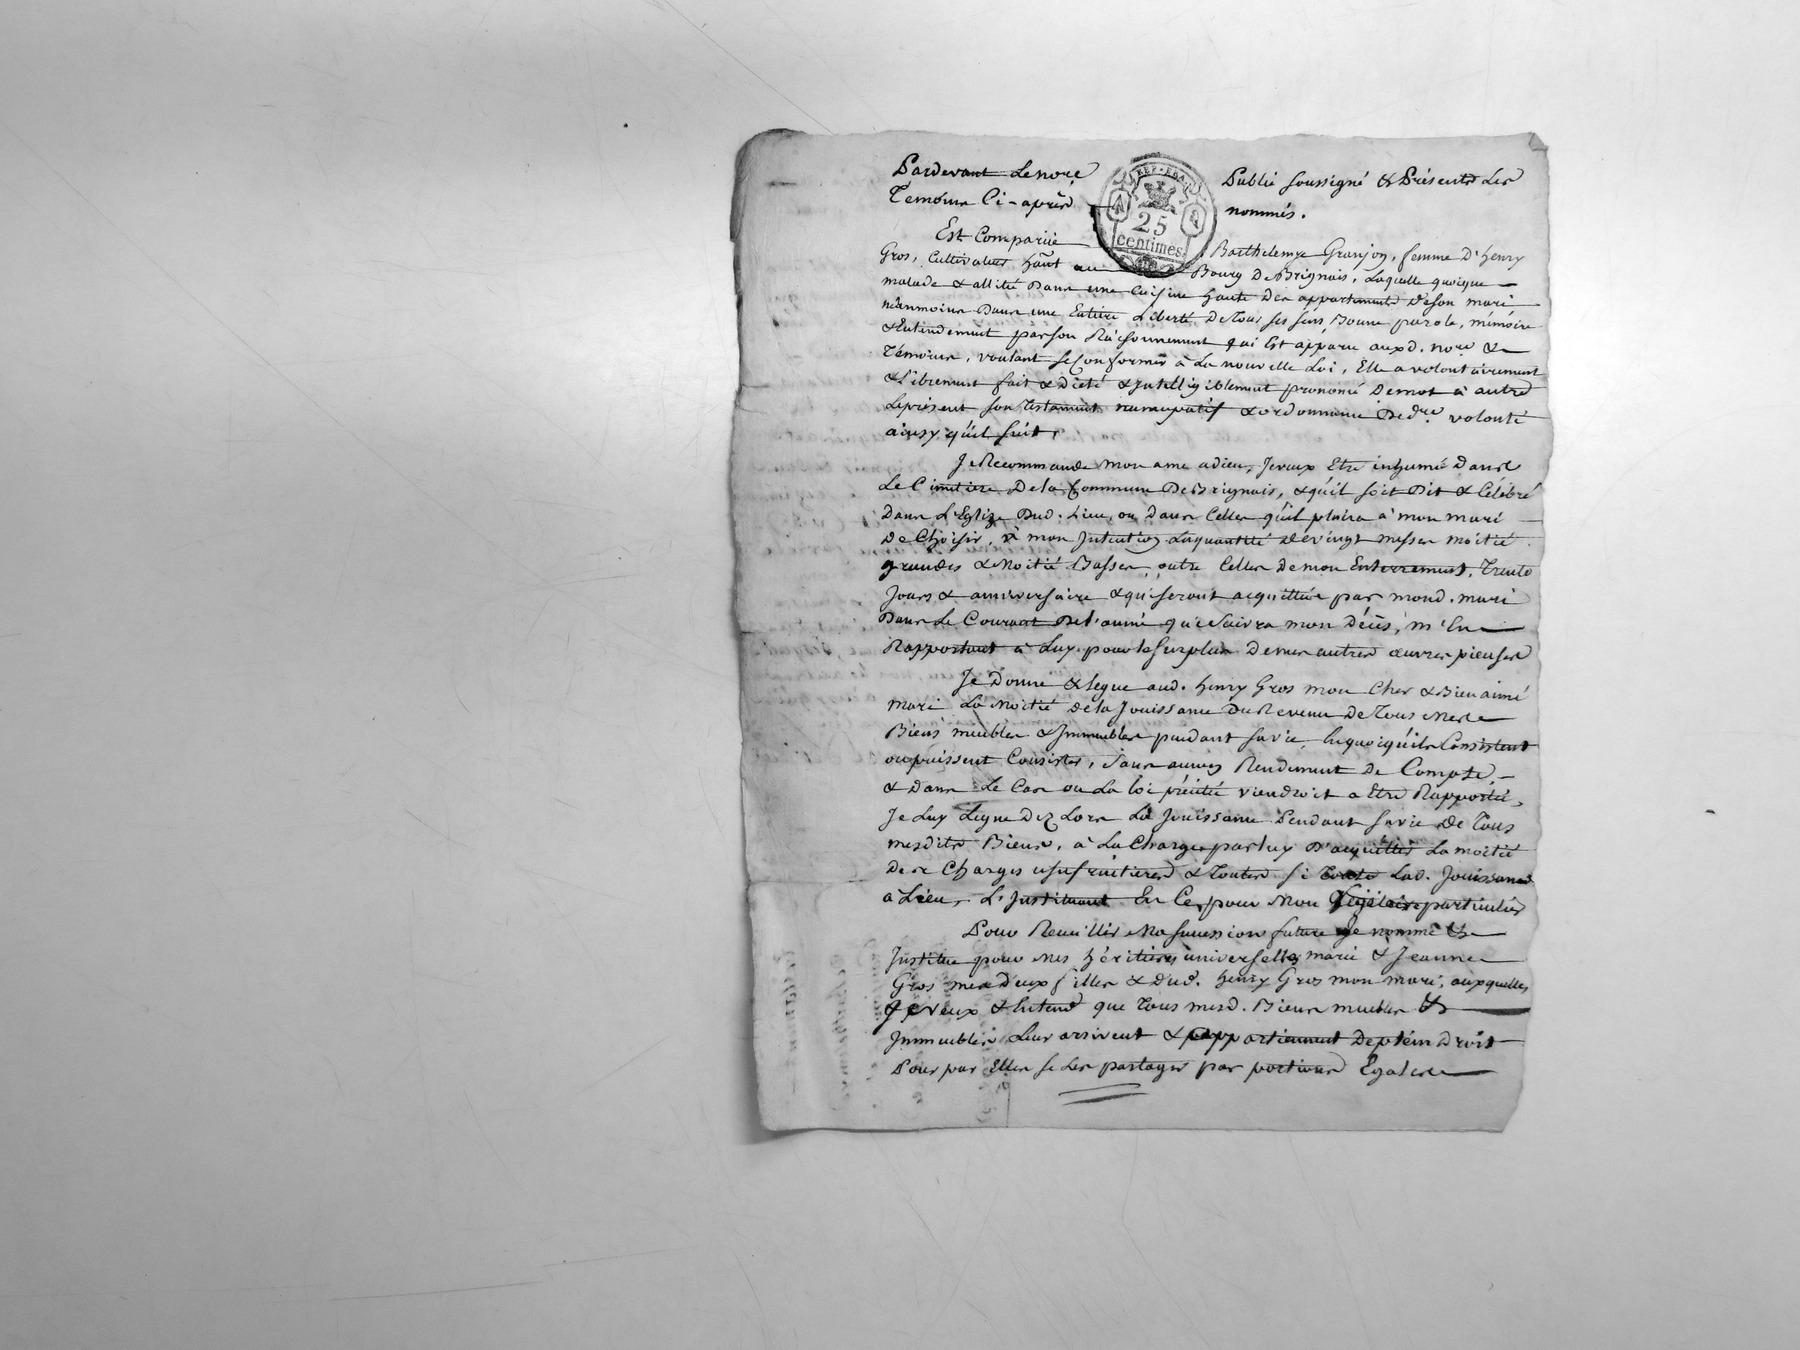 Pardevant Lenore Public soussigné & Présents Les
Témoins Ci-après nommés.
REP. FRA.
25
centimes
Est Comparüe Barthelemye Granjon, femme D'henry
Gros, Cultivateur hãnt au Bourg De Brignais, Laquelle quoique
malade & allitée Dans une Cuisine haute Des appartements De son mari
néanmoins Dans une Entiere Liberté De Tous ses sens, Bonne parole, mémoire
& Entendement par son Raisonnement qui Est apparu auxd. nore &
Témoins, voulant se Conformer à La nouvelle Loi, Elle a volontairement
& Librement fait & Dicté & Intelligiblement prononcé De mot à autre
Le présent son Testament nuncupatif & ordonnance De dre volonté
ainsy qu'il suit,
Je Recommande mon ame a dieu, Je veux Etre inhumé Dans
Le Cimitiere De la Commune De Brignais, & qu'il soit Dit & Célébré
Dans L'Eglize Dud. Lieu, ou Dans Celles qu'il plaira à mon mari
De Choisir, à mon Intention La quantité de vingt messes moitié
grandes & Moitié Basses, outre Celles De mon Enterrement, Trente
Jours & anniversaire & qui seront acquittées par mond. mari
Dans Le Courant De L'année qui Suivra mon Décès, m'En
Rapportant à Luy pour le Surplus De mes autres œuvres pieuses
Je Donne & legue aud. henry Gros mon Cher & Bien aimé
mari La Moitié de la Jouissance Du Revenu De Tous Mes
Biens meubles & Immeubles pendant sa vie, En quoi qu'ils Consistent
ou puissent Consister, sans aucun Rendement De Compte,
& Dans Le Cas ou La loi précitée viendroit a Etre Rapportée,
Je Luy Legue Dez Lors La Jouissance Pendant sa vie De Tous
mesdits Biens, à La Charge par luy D'acquitter La moitié
De ses Charges usufruitieres & Toutes si Toute Lad. Jouissance
a Lieu, L'Instituant En Ce, pour Mon Légataire particulier
Pour Recueillir Ma succession future Je nomme &
Institue pour Mes héritieres universelles marie & Jeanne
Gros mes Deux filles & Dud. henry Gros mon mari, auxquelles
Je veux & Entend que Tous mesd. Biens meubles &
Immeubles Leur arrivent & appartiennent De plein Droit
Pour par Elles se Les partager par portions Egales